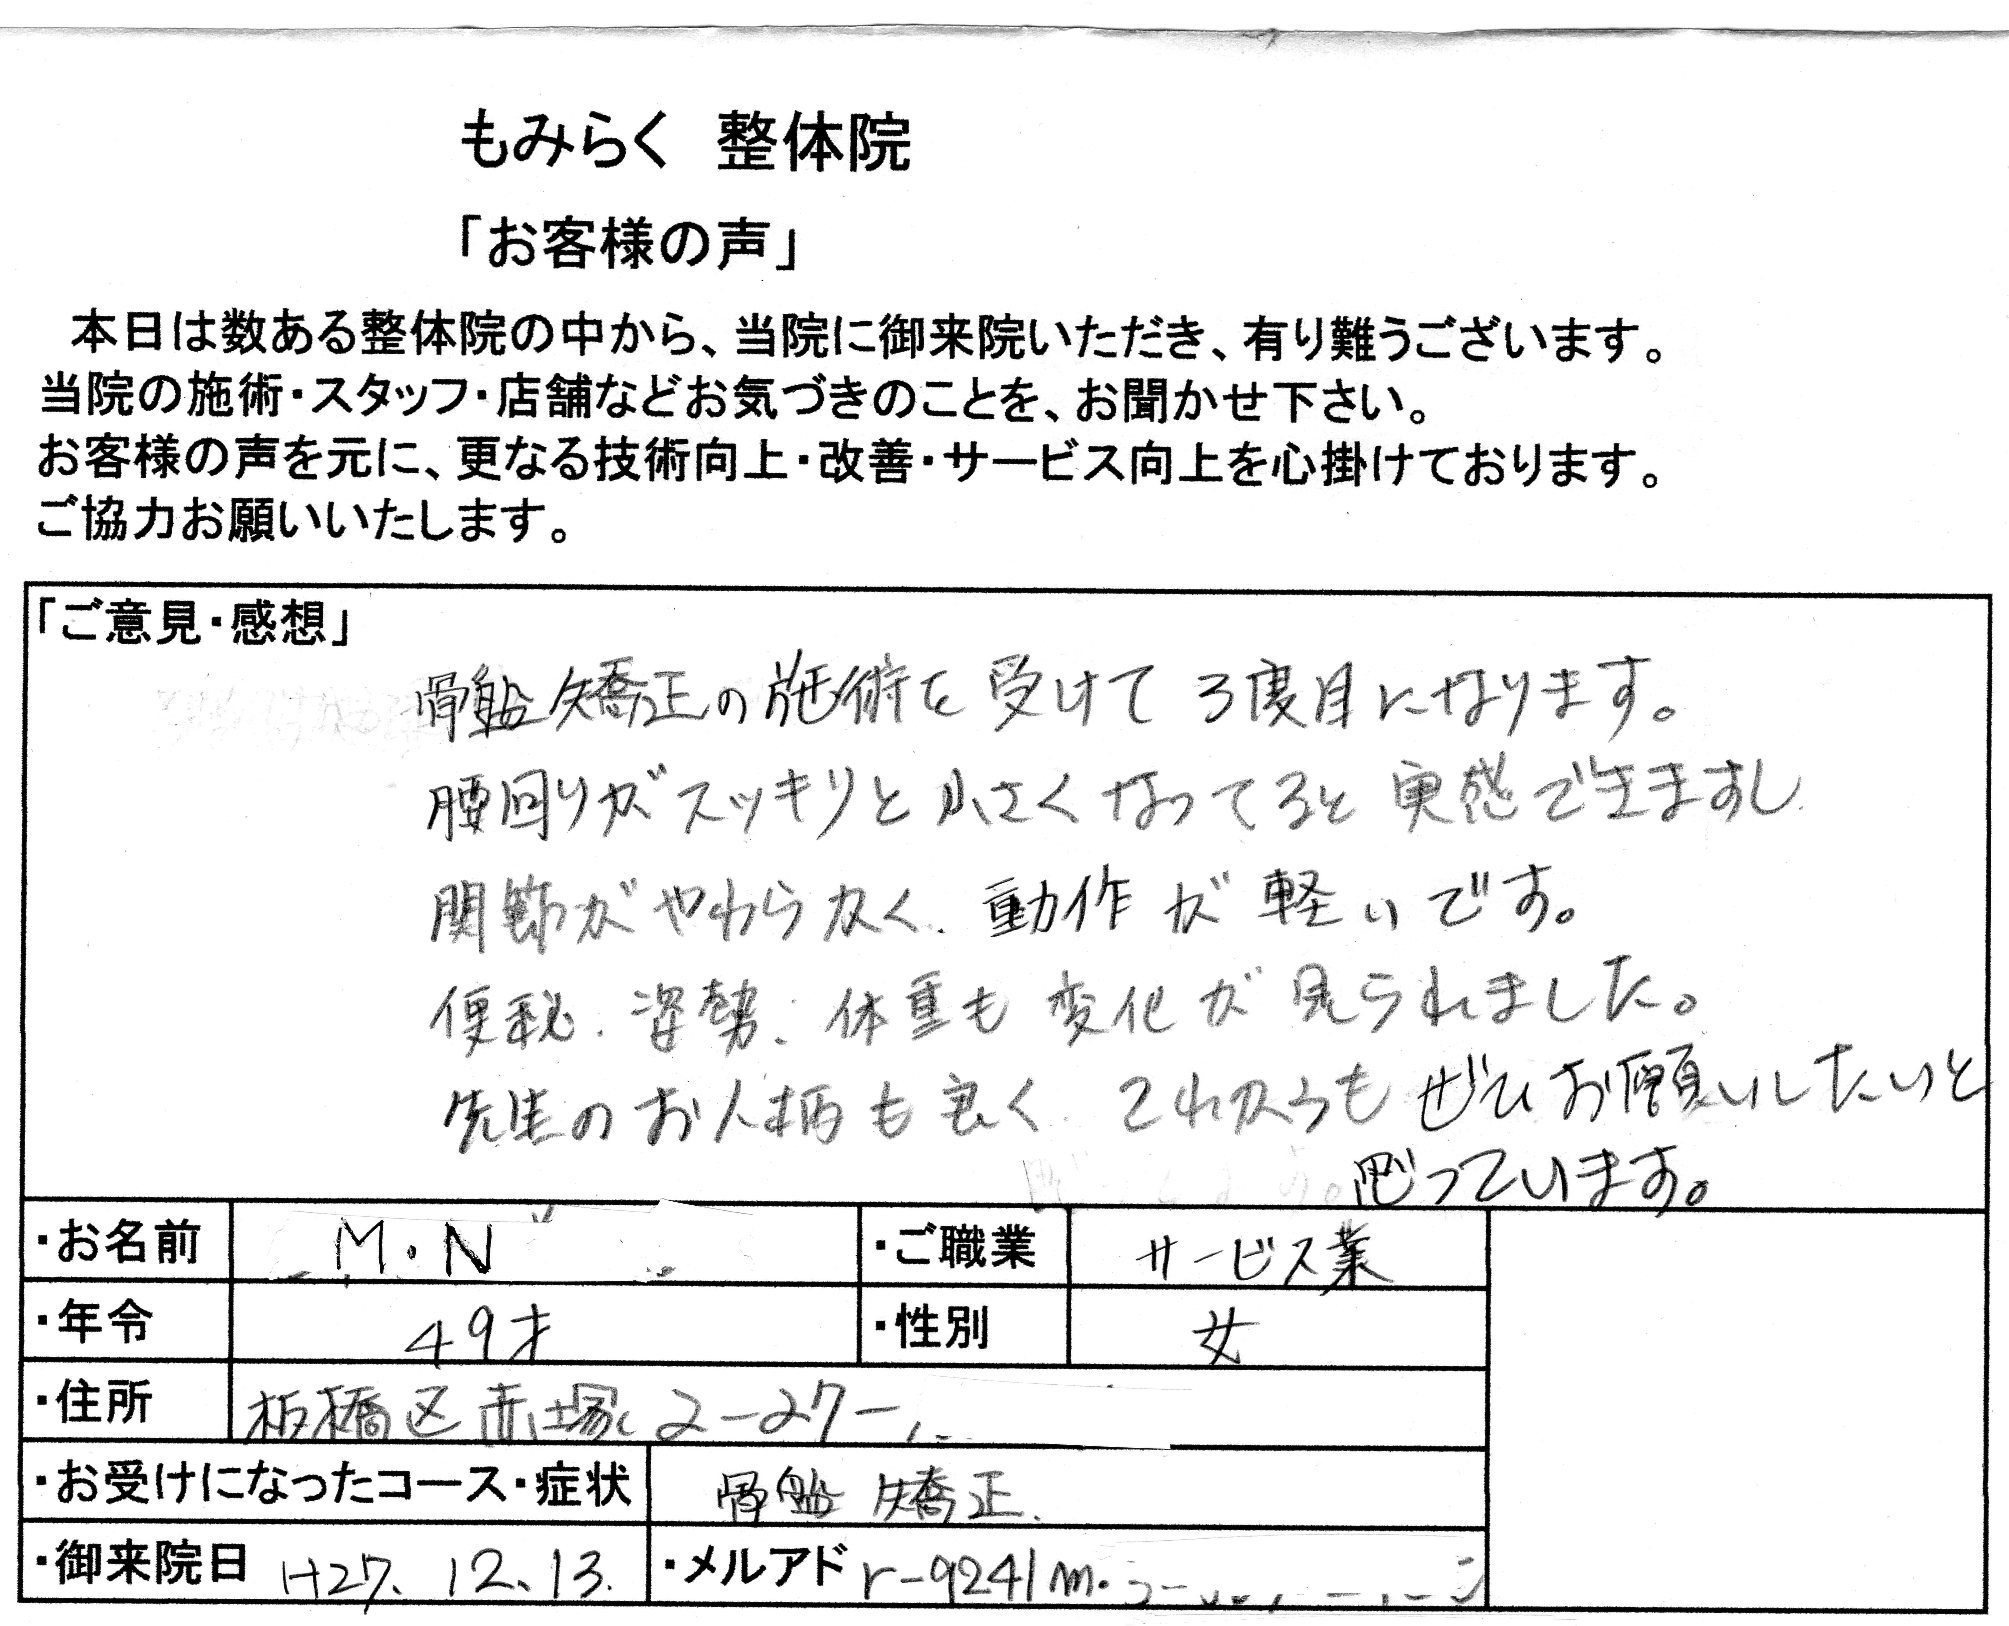 もみらく 整体院
「お客様の声」
本日は数ある整体院の中から、当院に御来院いただき、有り難うございます。
当院の施術・スタッフ・店舗などお気づきのことを、お聞かせ下さい。
お客様の声を元に、更なる技術向上・改善・サービス向上を心掛けております。
ご協力お願いいたします。
「ご意見・感想」
骨盤矯正の施術を受けて3度目になります。
腰回りがスッキリと小さくなってると実感できますし
関節がやわらかく、動作が軽いです。
便秘、姿勢、体重も変化が見られました。
先生のお人柄も良く、これからもぜひお願いしたいと
思っています。
・お名前 M・N ・ご職業 サービス業
・年令 49才 ・性別 女
・住所 板橋区赤塚 2-27-
・お受けになったコース・症状 骨盤矯正.
・御来院日 H27、12、13. ・メルアド r-9241m.